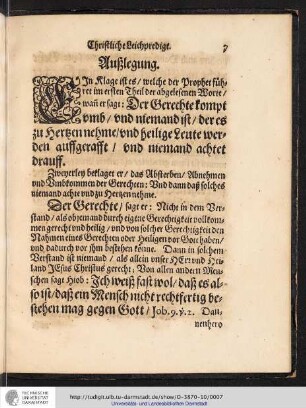 Christliche Leichpredigt. 7
Außlegung.
EIn Klage ist es / welche der Prophet füh-
ret im ersten Theil der abgelesenen Worte /
wañ er sagt: Der Gerechte kompt
vmb / vnd niemand ist / der es
zu Hertzen nehme / vnd heilige Leute wer-
den auffgerafft / vnd niemand achtet
drauff.
Zweyerley beklaget er / das Absterben / Abnehmen
vnd Vmbkommen der Gerechten: Vnd dann daß solches
niemand achte vnd zu Hertzen nehme.
Der Gerechte / sagt er: Nicht in dem Ver-
stand / als ob jemand durch eigene Gerechtigkeit vollkom-
men gerecht vnd heilig / vnd von solcher Gerechtigkeit den
Nahmen eines Gerechten oder Heiligen vor Gott haben /
vnd dadurch vor jhm bestehen könne. Dann in solchem
Verstand ist niemand / als allein vnser HErr vnd Hei-
land JEsus Christus gerecht; Von allen andern Men-
schen sagt Hiob: Ich weiß fast wol / daß es al-
so ist / daß ein Mensch nicht rechtfertig be-
stehen mag gegen Gott / Job. 9. v. 2. Dan-
nenhero
TECHNISCHE
UNIVERSITÄT
DARMSTADT
http://tudigit.ulb.tu-darmstadt.de/show/G-3870-10/0007
Universitäts- und Landesbibliothek Darmstadt